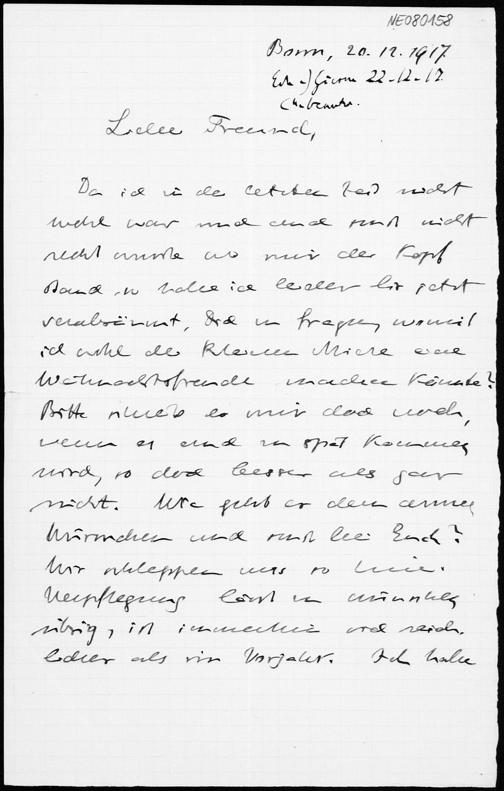 NE080158
Bonn, 20.12.1917
22.12.17
Lieber Freund,
Da ich in der letzten Zeit nicht
wohl war und auch sonst nicht
recht wusste wo mir der Kopf
stand so habe ich leider bis jetzt
versäumt, Dich zu fragen, womit
ich wohl der kleinen Mieze eine
Weihnachtsfreude machen könnte?
Bitte schreib es mir doch noch,
wenn es auch zu spät kommen
wird, so doch besser als gar
nicht. Wie geht es dem armen
Würmchen und sonst bei Euch?
Wir schleppen uns so hin.
Verpflegung lässt zu wünschen
übrig, ist immerhin viel reich-
licher als im Vorjahr. Ich habe